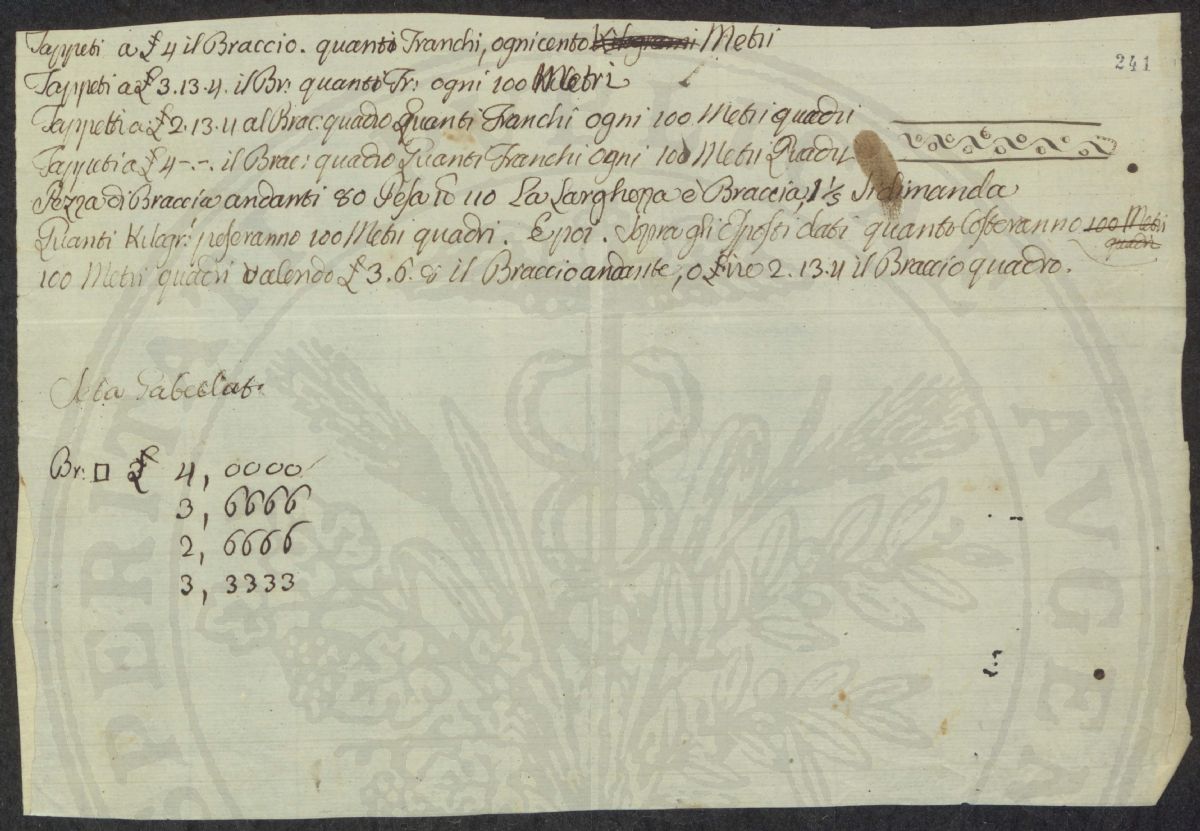 241
Tappeti a £ 4 il Braccio. quanti Franchi, ogni cento Kilogrami Metri
Tappeti a £ 3.13.4. il Br: quanti Fr: ogni 100 Metri
Tappetti a £ 2.13.4 al Brac. quadro Quanti Franchi ogni 100 Metri quadri
Tappeti a £ 4 -.-. il Brac: quadro Quanti Franchi ogni 100 Metri Quadri
Pezza di Braccia andanti 80 Pesa 110 La Larghezza è Braccia 1 1/5 Si dimanda
Quanti Kilagr: peseranno 100 Metri quadri. E poi. Sopra gli Esposti dati quanto Costeranno 100 Metri
quadri
100 Metri quadri valendo £ 3.6.8 il Braccio andante, o £ire 2.13.4 il Braccio quadro.
Br: □ £ 4,0000
3,6666
2,6666
3,3333